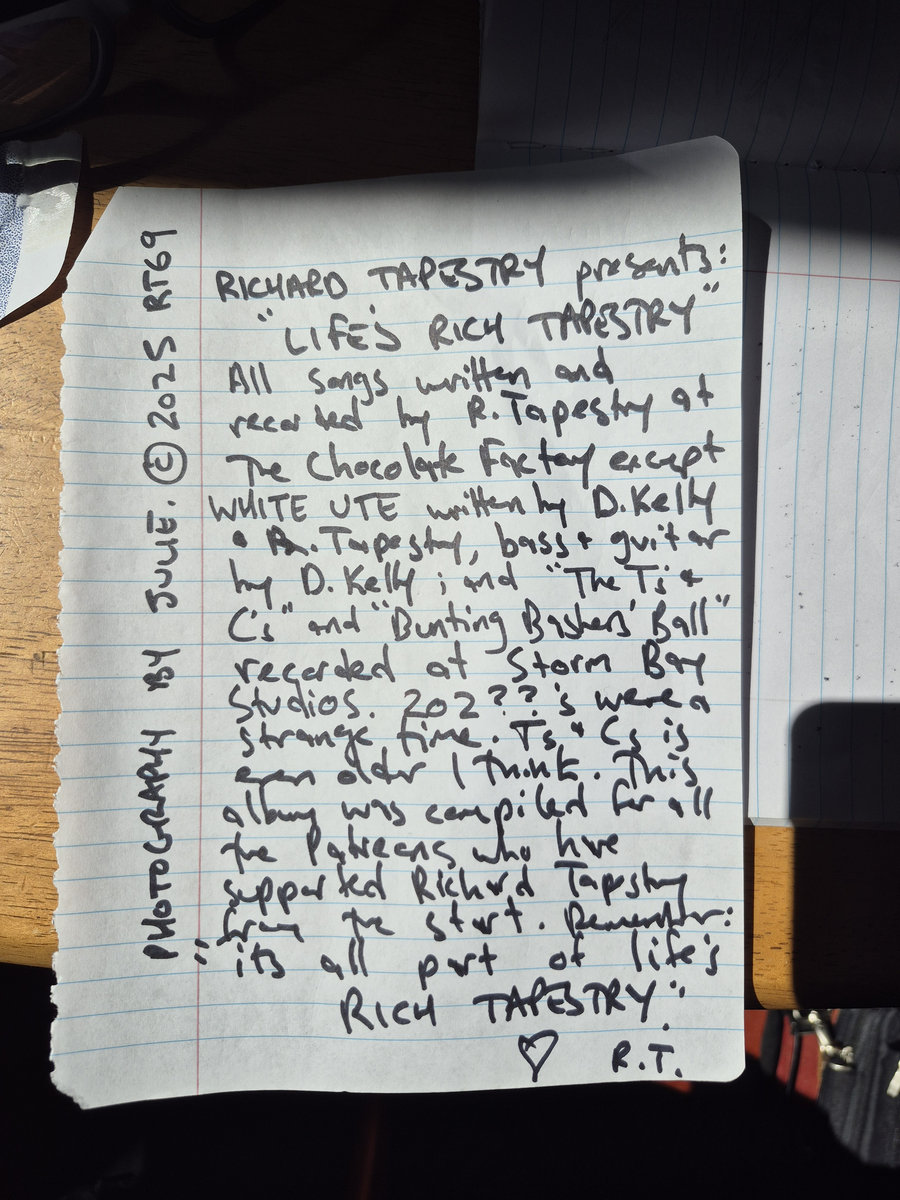 RICHARD TAPESTRY presents:
"LIFE'S RICH TAPESTRY"
All songs written and
recorded by R. Tapestry at
The Chocolate Factory except
WHITE UTE written by D. Kelly
+ R. Tapestry, bass + guitar
by D. Kelly; and "The Ts +
C's" and "Bunting Bashers' Ball"
recorded at Storm Bay
Studios. 202??'s were a
strange time. Ts + Cs is
even older I think. This
album was compiled for all
the Patreons who have
supported Richard Tapestry
from the start. Remember:
"it's all part of life's
RICH TAPESTRY".
♡ R.T.
PHOTOGRAPHY BY JULIE. © 2025 RT69